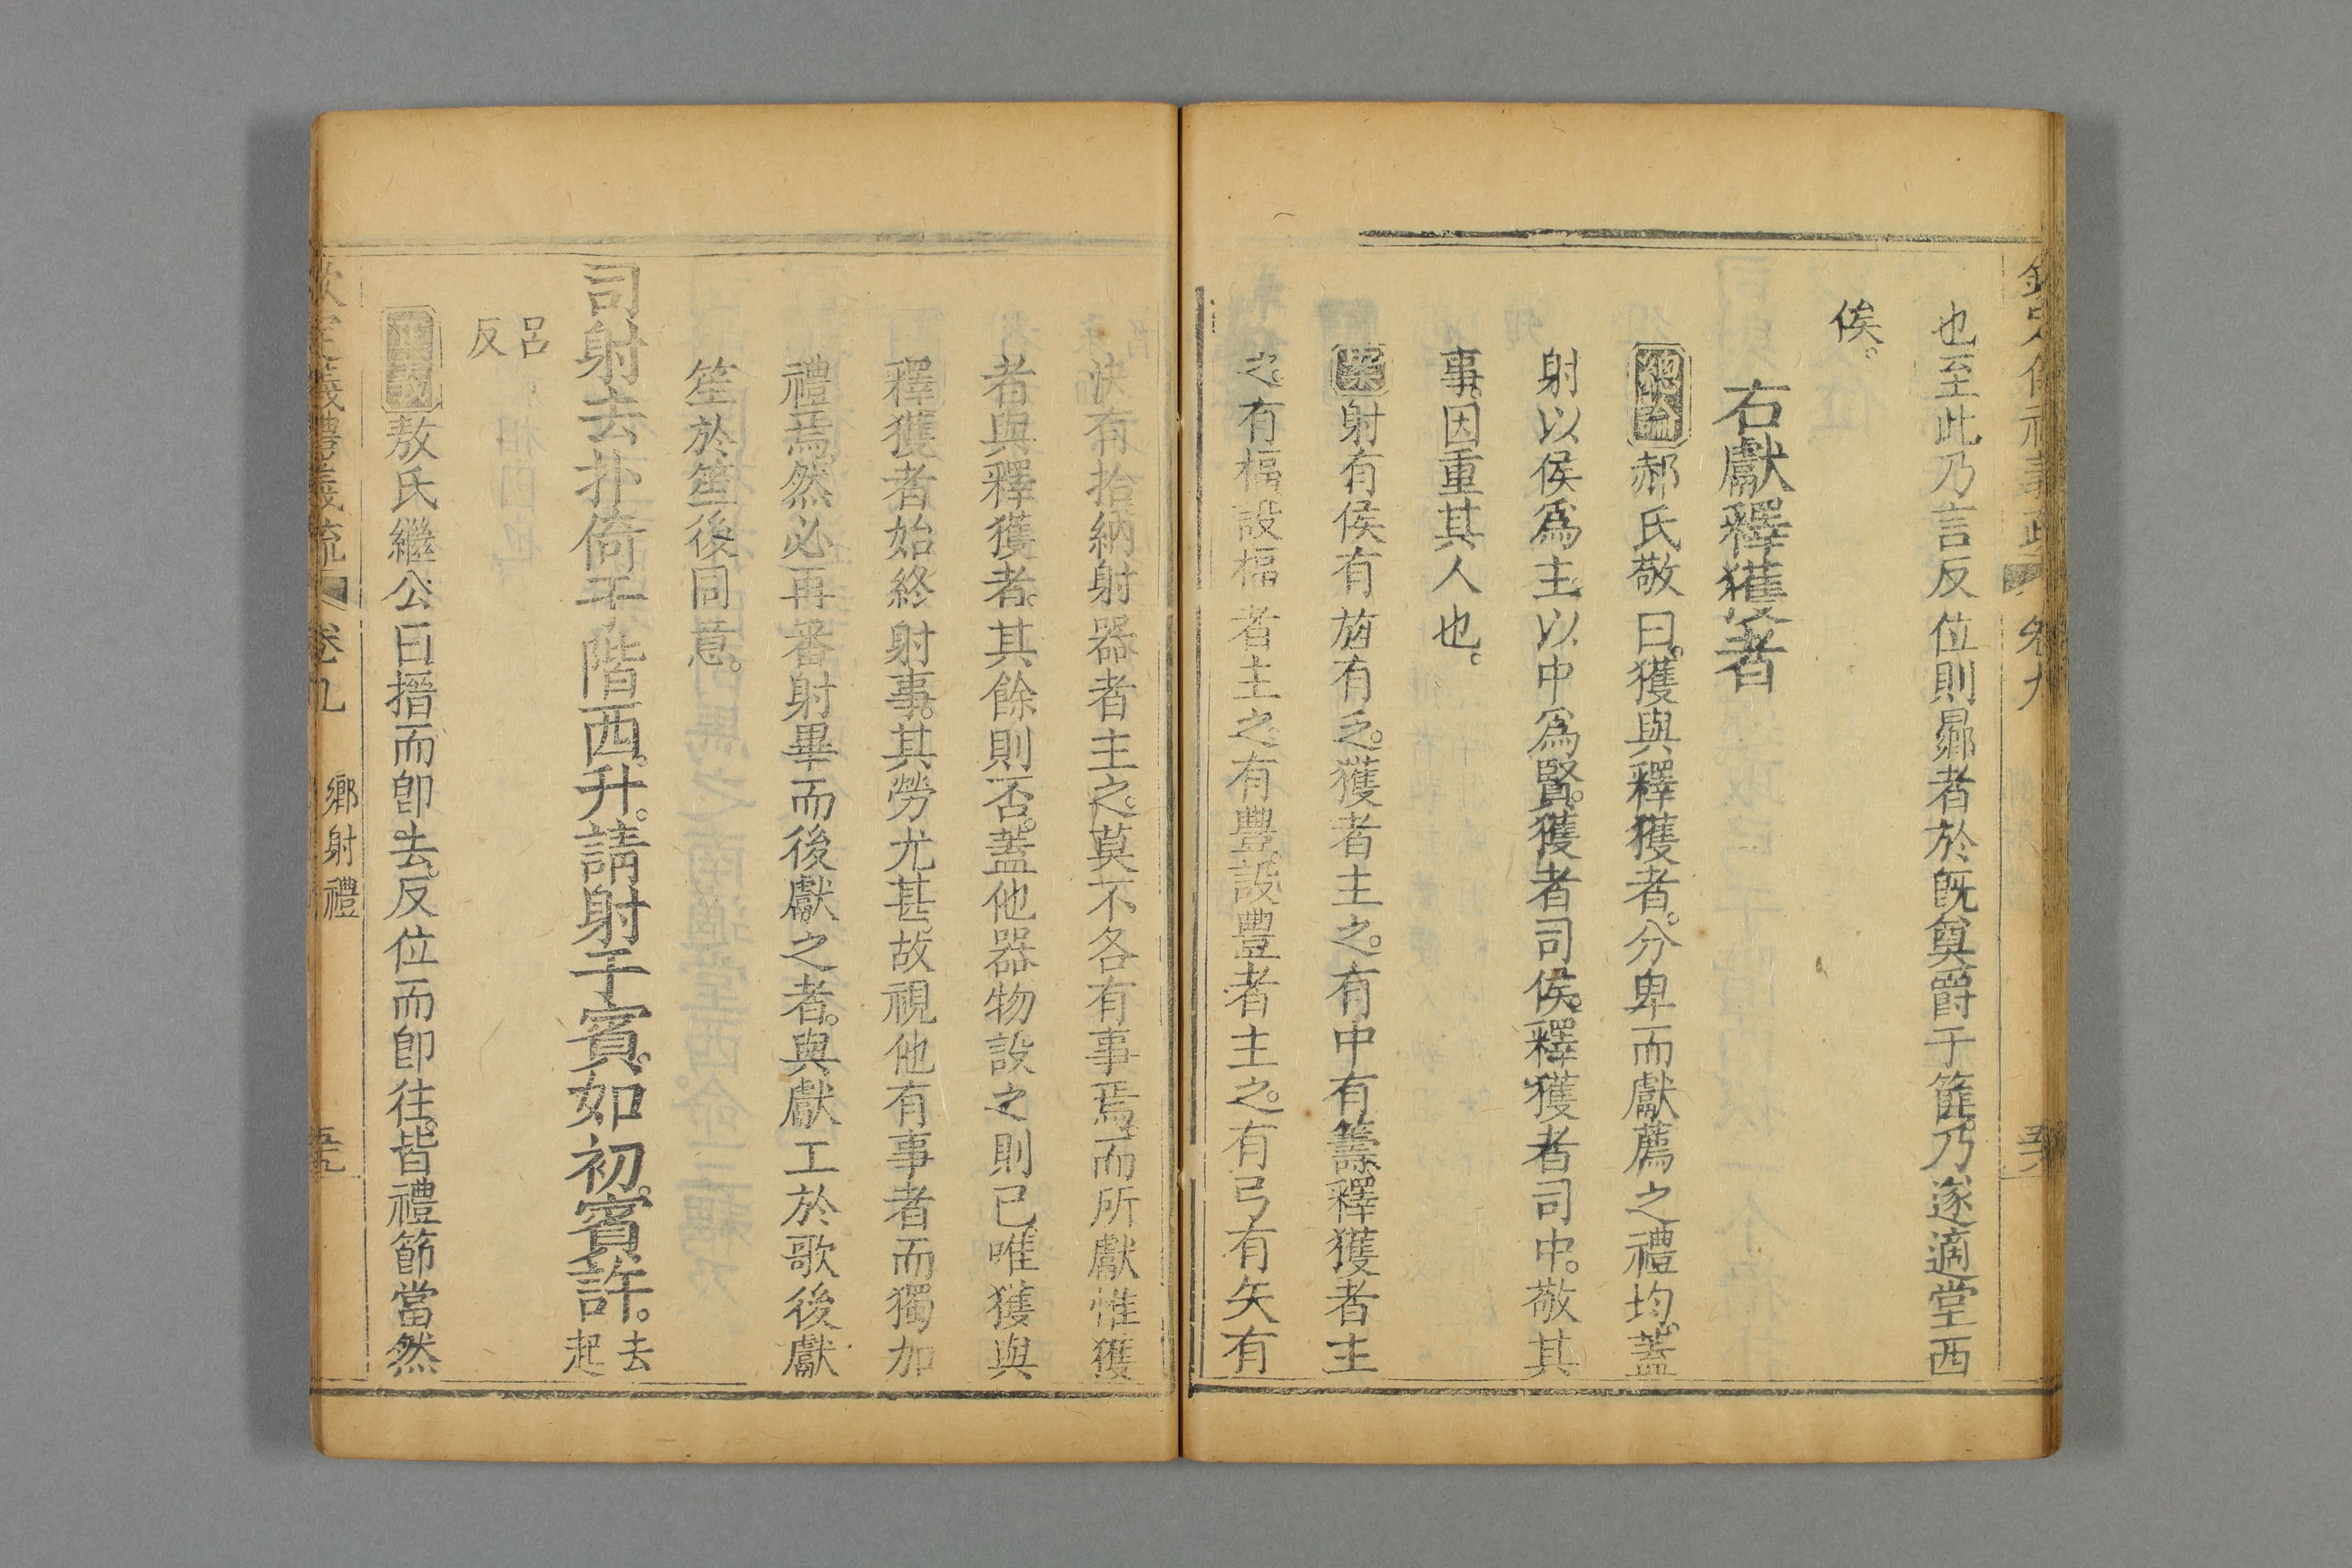 也至此乃言反位則曏者於既奠爵于篚乃遂適堂西
俟。
右獻釋獲者
總論郝氏敬曰。獲與釋獲者。分卑而獻薦之禮均。蓋
射以侯爲主。以中爲賢。獲者司侯。釋獲者司中。敬其
事。因重其人也。
案射有侯有旌有乏。獲者主之。有中有籌釋獲者主
之。有楅設楅者主之。有豐設豐者主之。有弓有矢有
決有拾納射器者主之。莫不各有事焉。而所獻惟獲
者與釋獲者。其餘則否。蓋他器物設之則已。唯獲與
釋獲者始終射事。其勞尤甚。故視他有事者而獨加
禮焉。然必再番射畢而後獻之者。與獻工於歌後獻
笙於笙後同意。
司射去扑倚于階西。升。請射于賓。如初。賓許。去起
呂反
正義敖氏繼公曰搢而卽去。反位而卽往。皆禮節當然
欽定儀禮義疏 卷九 鄉射禮 五九